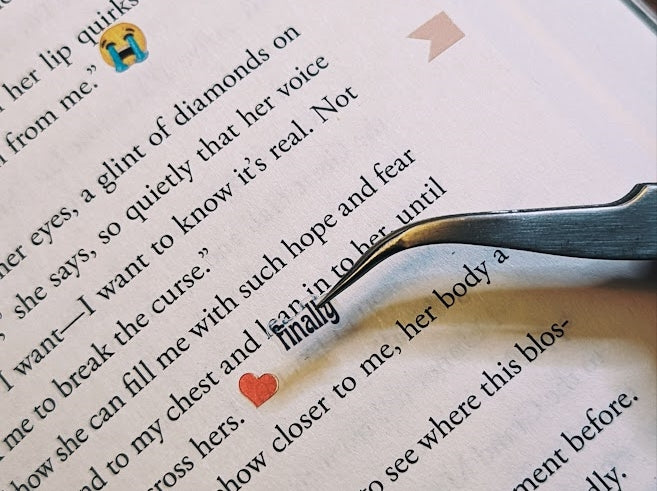 her lip quirks
from me.”
her eyes, a glint of diamonds on
she says, so quietly that her voice
I want—I want to know it’s real. Not
me to break the curse.”
how she can fill me with such hope and fear
nd to my chest and lean in to her, until
finally
cross hers.
how closer to me, her body a
to see where this blos-
ment before.
dly.